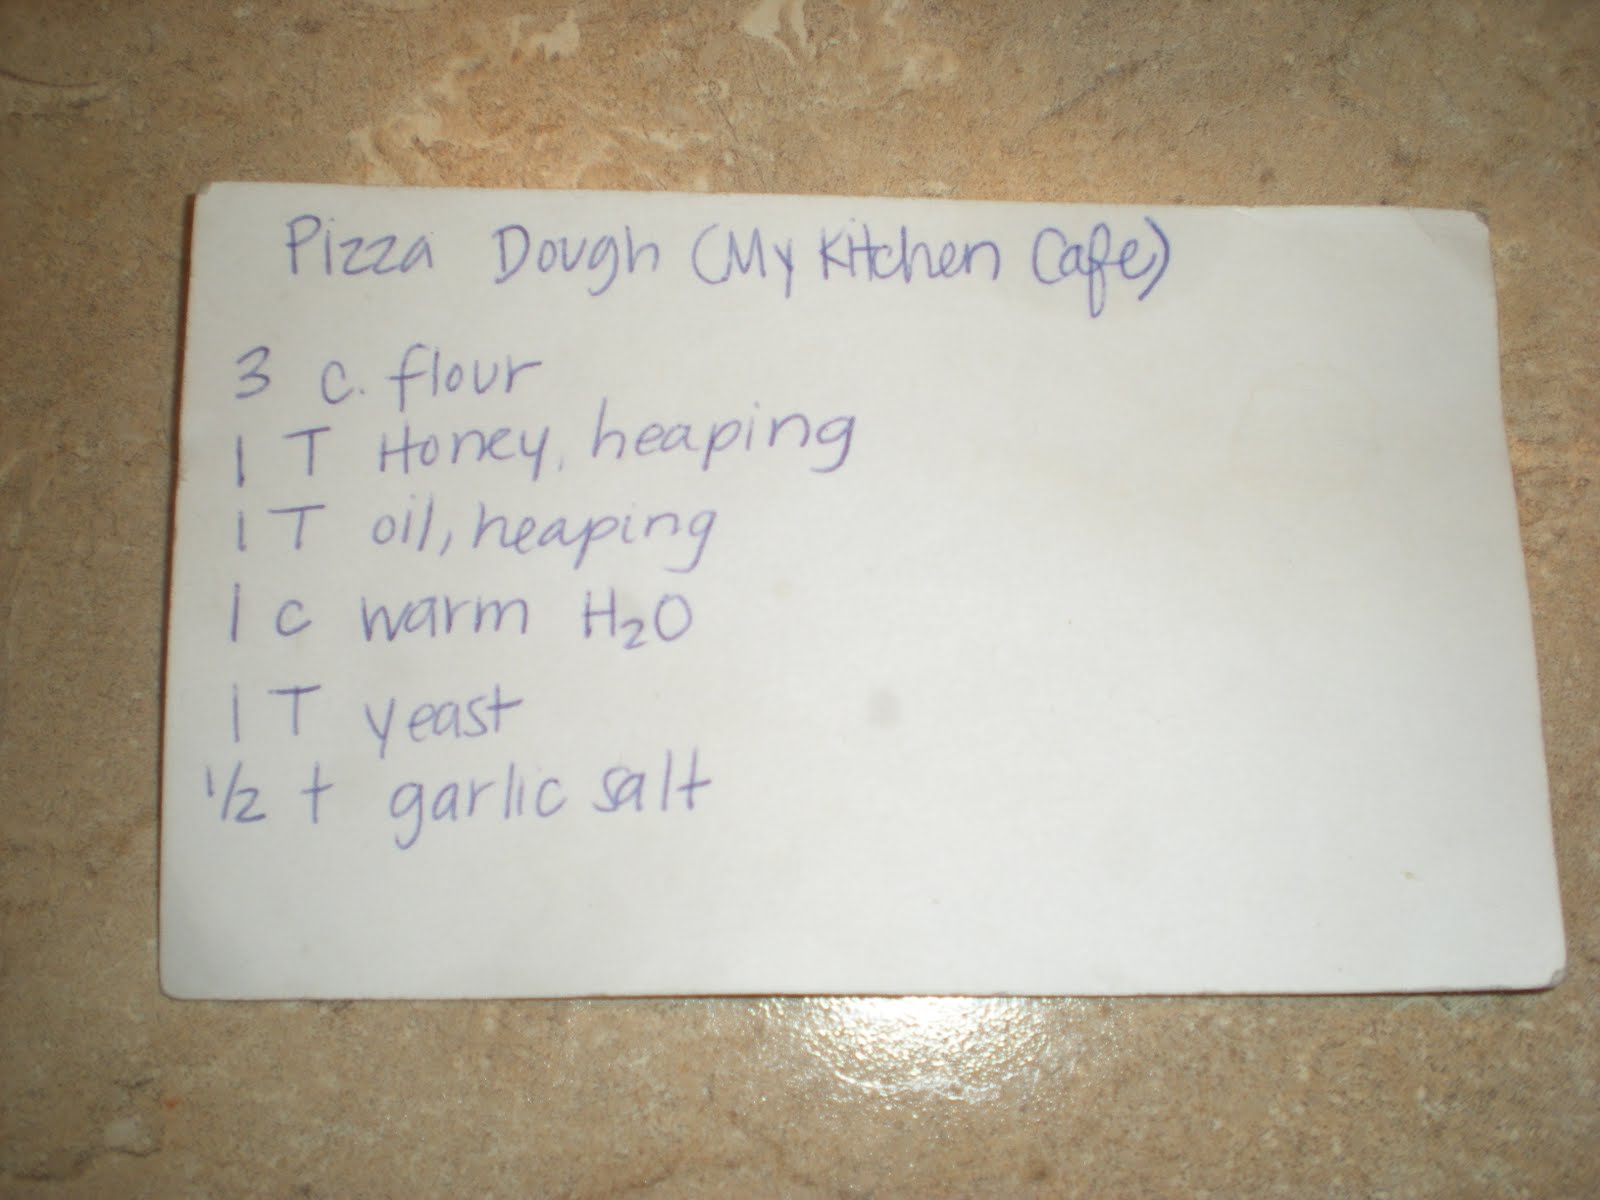 Pizza Dough (My Kitchen Cafe)
3 c. flour
1 T Honey, heaping
1 T oil, heaping
1 c warm H₂O
1 T yeast
1/2 t garlic salt